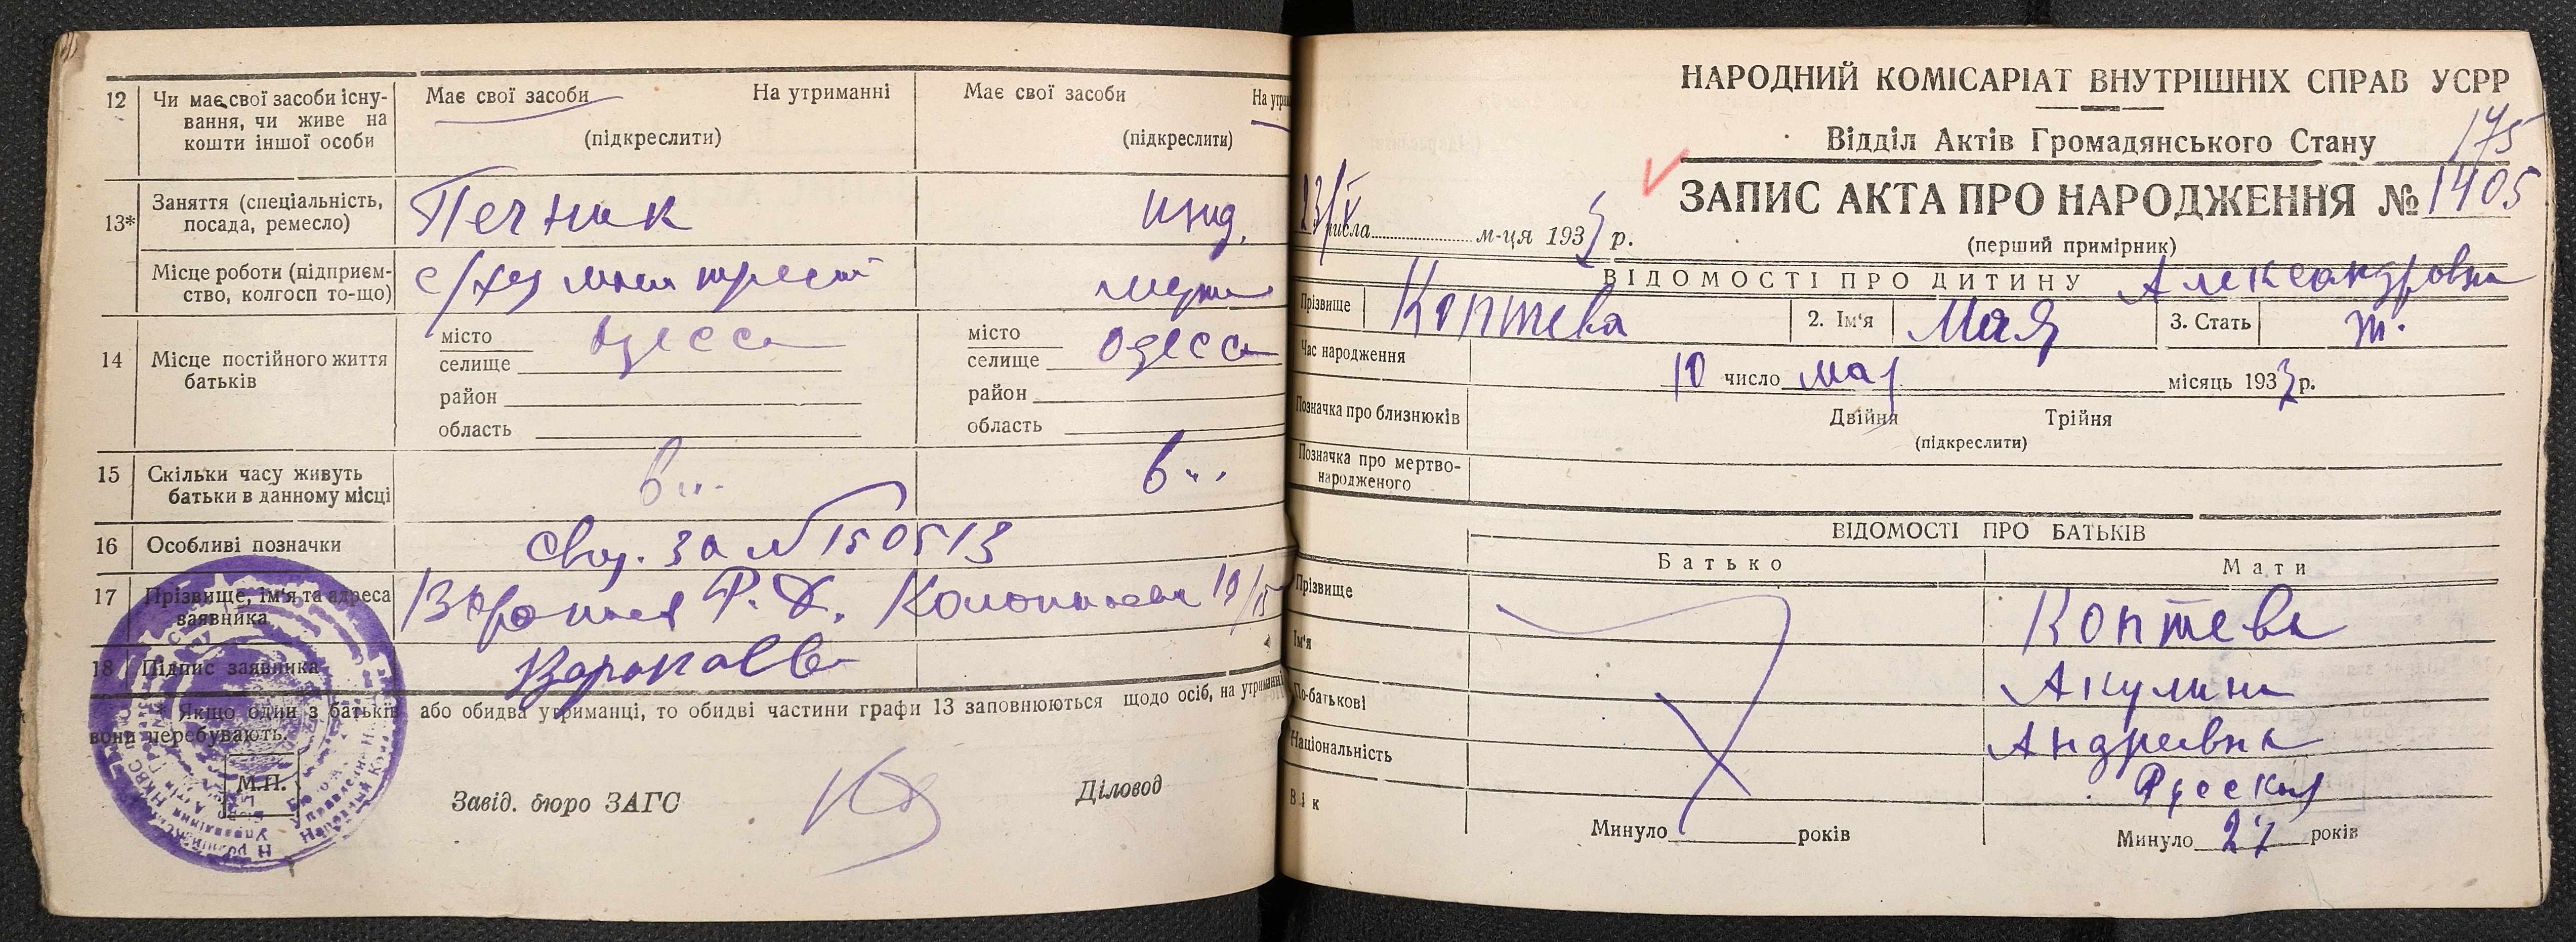 12 Чи має свої засоби існу-
вання, чи живе на
кошти іншої особи
Має свої засоби На утриманні
(підкреслити)
Має свої засоби На утри
(підкреслити)
13* Заняття (спеціальність,
посада, ремесло)
Печник
ижд.
Місце роботи (підприєм-
ство, колгосп то-що)
трест
мужа
14 Місце постійного життя
батьків
місто
селище
Одесса
район
область
місто
селище
Одесса
район
область
15 Скільки часу живуть
батьки в данному місці
16 Особливі позначки
Свид. за № 150513
17 Прізвище, ім'я та адреса
заявника
18 Підпис заявника
* Якщо один з батьків або обидва утриманці, то обидві частини графи 13 заповнюються щодо осіб, на утриманні
вони перебувають.
М.П.
Завід. бюро ЗАГС
Діловод
НАРОДНИЙ КОМІСАРІАТ ВНУТРІШНІХ СПРАВ УСРР
Відділ Актів Громадянського Стану
175
ЗАПИС АКТА ПРО НАРОДЖЕННЯ № 1405
(перший примірник)
числа м-ця 193 р.
ВІДОМОСТІ ПРО ДИТИНУ Александровна
Прізвище Коптева 2. Ім'я Мая 3. Стать ж.
Час народження 10 число мая місяць 1933 р.
Позначка про близнюків Двійня Трійня
(підкреслити)
Позначка про мертво-
народженого
ВІДОМОСТІ ПРО БАТЬКІВ
Батько Мати
Прізвище Коптева
Ім'я Акулина
По-батькові Андреевна
Національність Русская
Вік
Минуло років Минуло 27 років